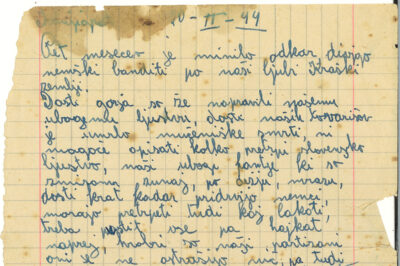 10-II-44
Čet mesecev je minilo odkar divjajo
nemški banditi po naši ljubi Kraški
zemlji.
Dosti gorja so že napravili našemu
ubogmu ljustvu, dosti naših tovarišov
je umrlo mučeniške smrti, ni
mogoče opisati kolko trpi slovensko
ljustvo, naši ubogi fantje ki so
zmirom zunaj, po dežju, mrazu,
dosti krat kadar pridrvijo nemci,
morajo pretrpeti tudi kej lakoti,
treba pustit vse pa hajkat
naprej, hrabri so naši partizani
oni je ne ustrašijo nič, pa tudi